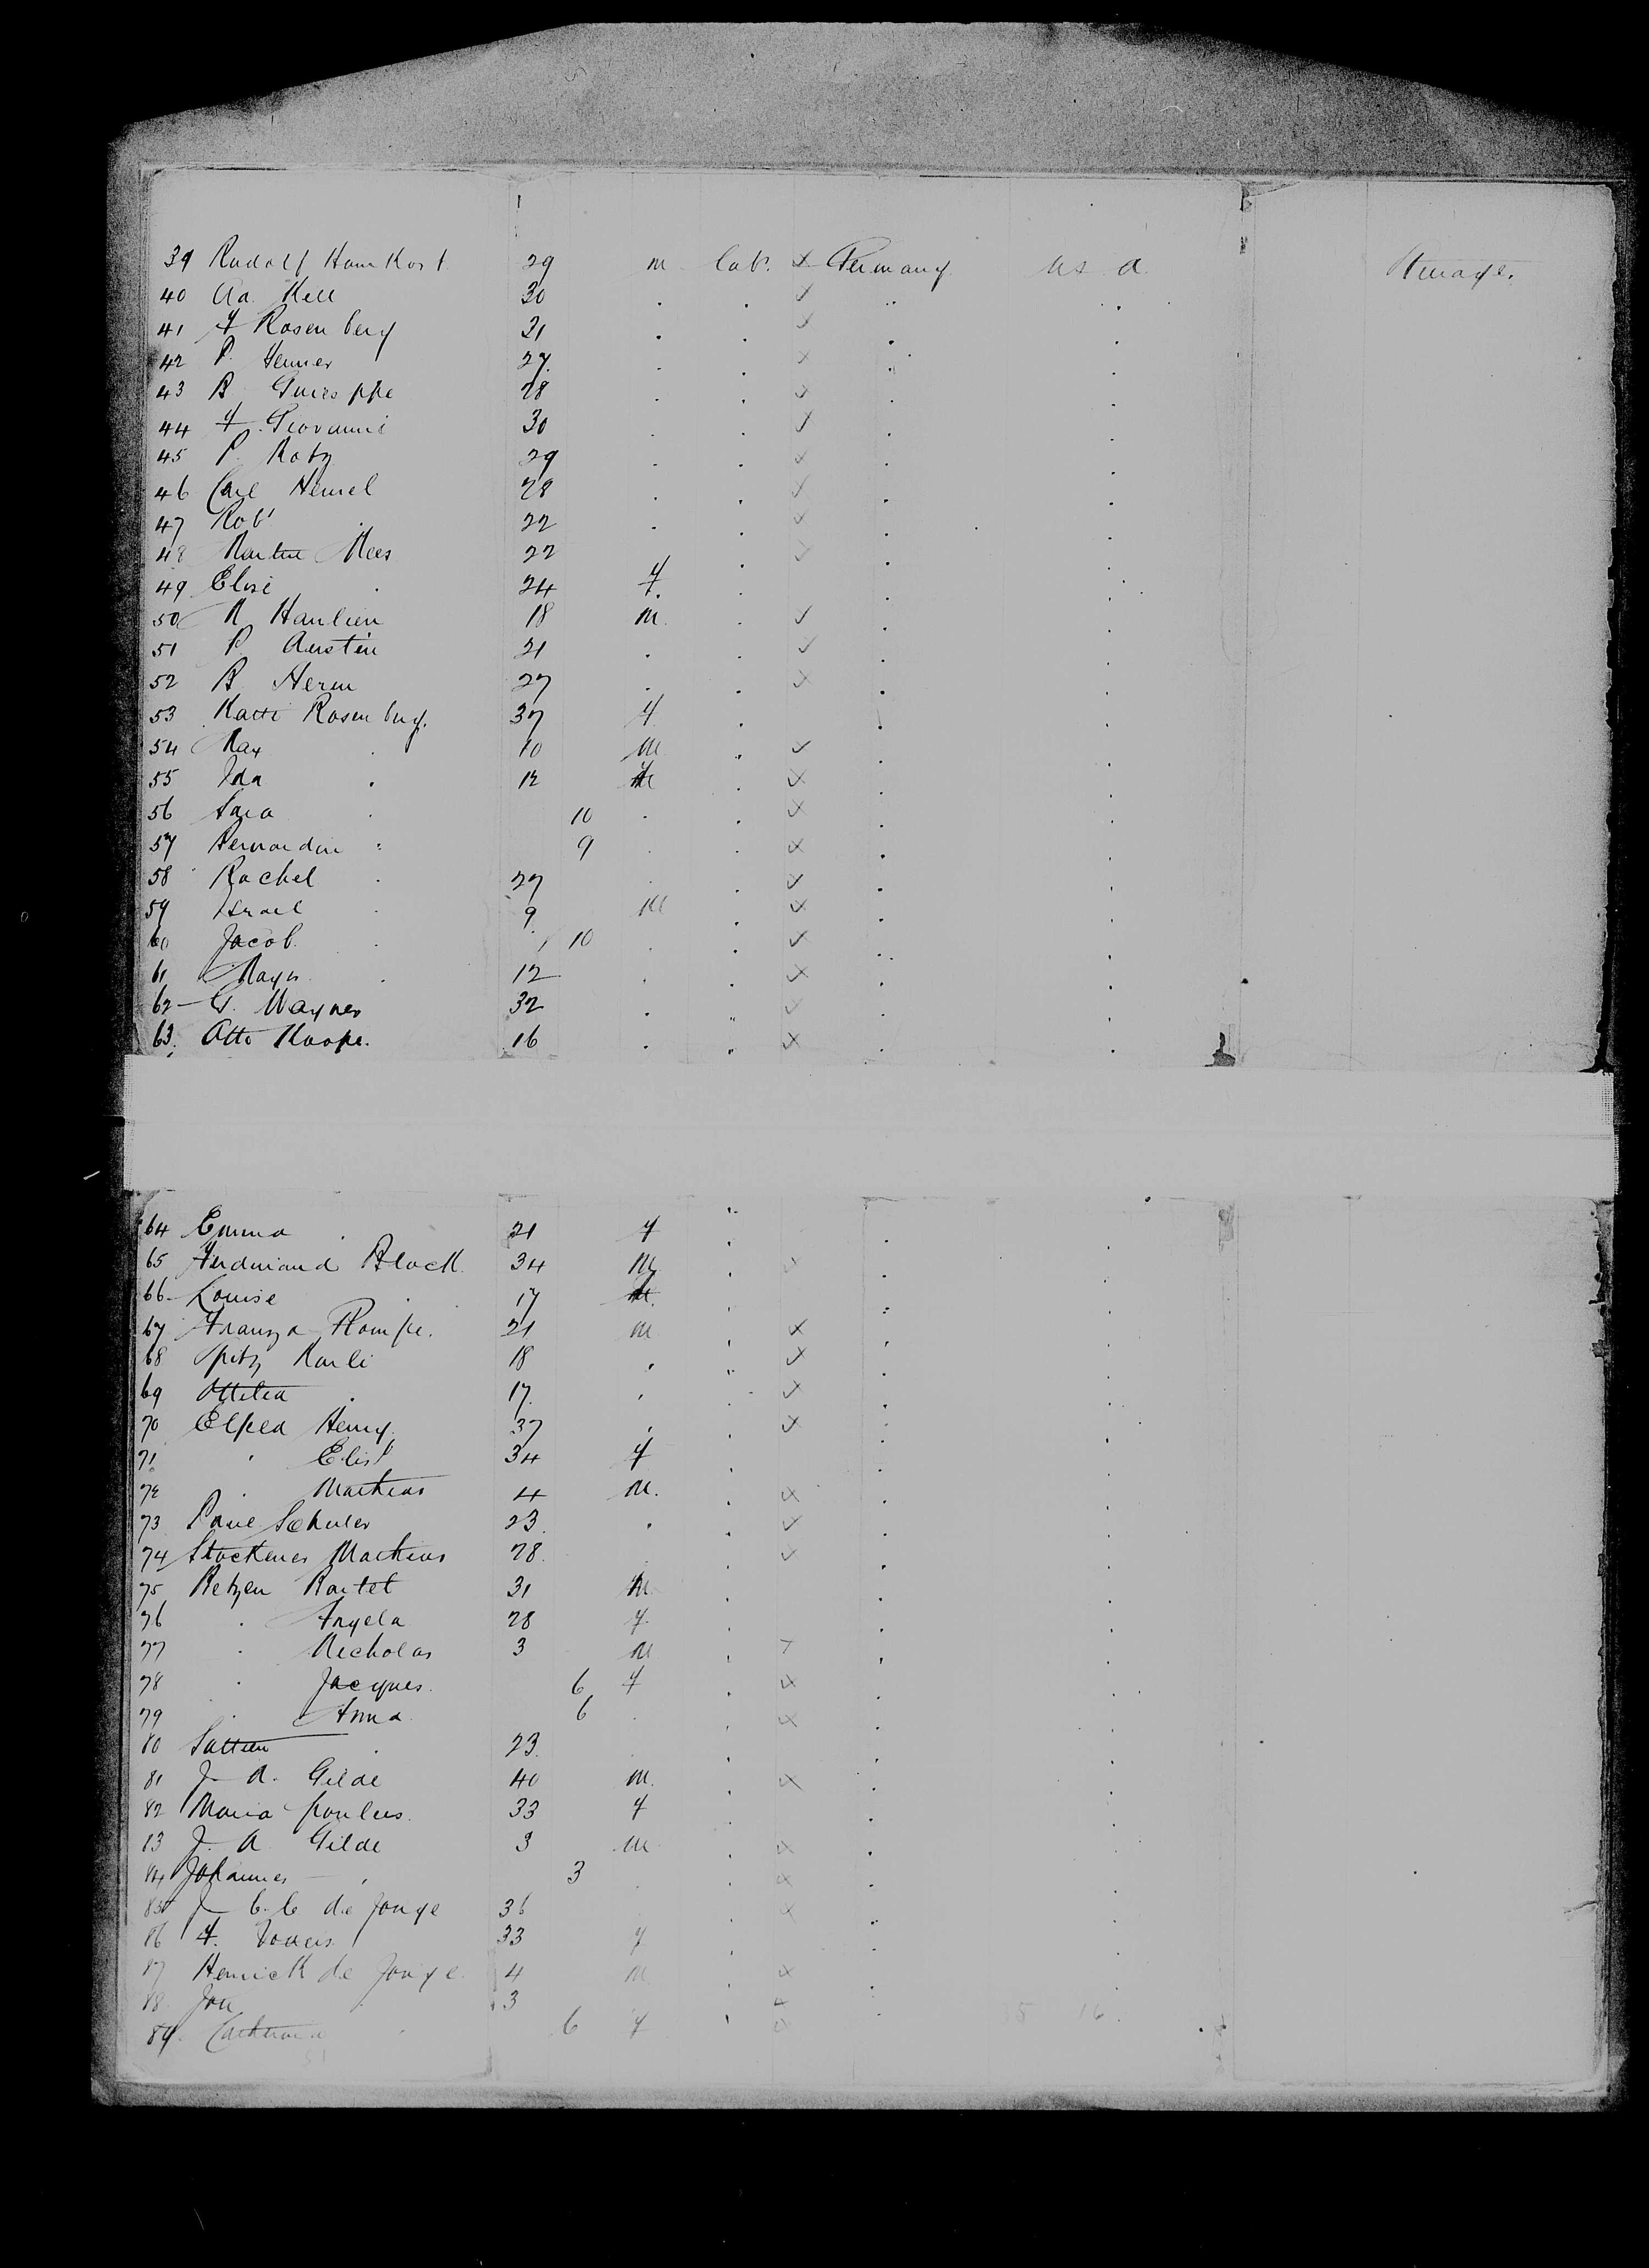 39 Rudolf Hamkost 29 m Lab. x Germany U S A Steerage.
40 Aa. Kell 30 . . ✓ " .
41 F Rosenberg 21 . . ✓ . .
42 P. Henner 27. . . x . .
43 B Guiesppe 28 . . ✓ . .
44 F. Giovanni 30 . . ✓ . .
45 P. Kotz 29 . . x . .
46 Carl Hensel 28 . . ✓ . .
47 Rob' . 22 . . x . .
48 Martin Mees 22 . ✓ . .
49 Elise . 24 F. . . .
50 N Hanlien 18 m. . ✓ . .
51 P Austin 21 . . ✓ . .
52 B Herm 27 . . x . .
53 Katti Rosenberg. 37 F . . .
54 Max . 10 M " ✓ . .
55 Ida . 12 . x . .
56 Sara . 10 . . x . .
57 Bernardin " 9 . . x . .
58 Rachel . 27 . . ✓ . .
59 Israel . 9 M . x . .
60 Jacob . 10 . . ✓ . .
61 . 12 . . x . .
62 – G. Wagner 32 . " ✓ . .
63. Otto Koope. 16 . " x . .
64 Emma . 21 F . . .
65 Ferdinand Block 34 M . x . .
66 – Louise . 17 . . .
67 Franza Plompe. 21 m . x . .
68 Spitz Karli 18 . " x . .
69 Ottilia . 17. . . x . .
70 Elped Henry. 37 . . x . .
71 " Elis' 34 F . . .
72 . Mathias 4 M. . x . .
73 Paul Schuler 23. . . ✓ . .
74 Stockener Mathias 28. . . ✓ . .
75 Retzen Bartel 31 M . . .
76 . Angela 28 F. . . .
77 . Nicholas 3 M . x . .
78 . Jacques. 6 F . x . .
79 . Anna 6 . . x . .
80 . 23. . . . .
81 J – A. Gilde 40 M. . x . .
82 Maria Paulus. 33 F . . .
83 J. A Gilde 3 M . x . .
84 Johannes – . 3 . . x . .
85 J – C. C de Jonge 36 x " .
86 F. 33 F . . .
87 Henrick de Jonge. 4 M . x . .
88. Jan . 3 . x .
89. Catherina . 6 F . x